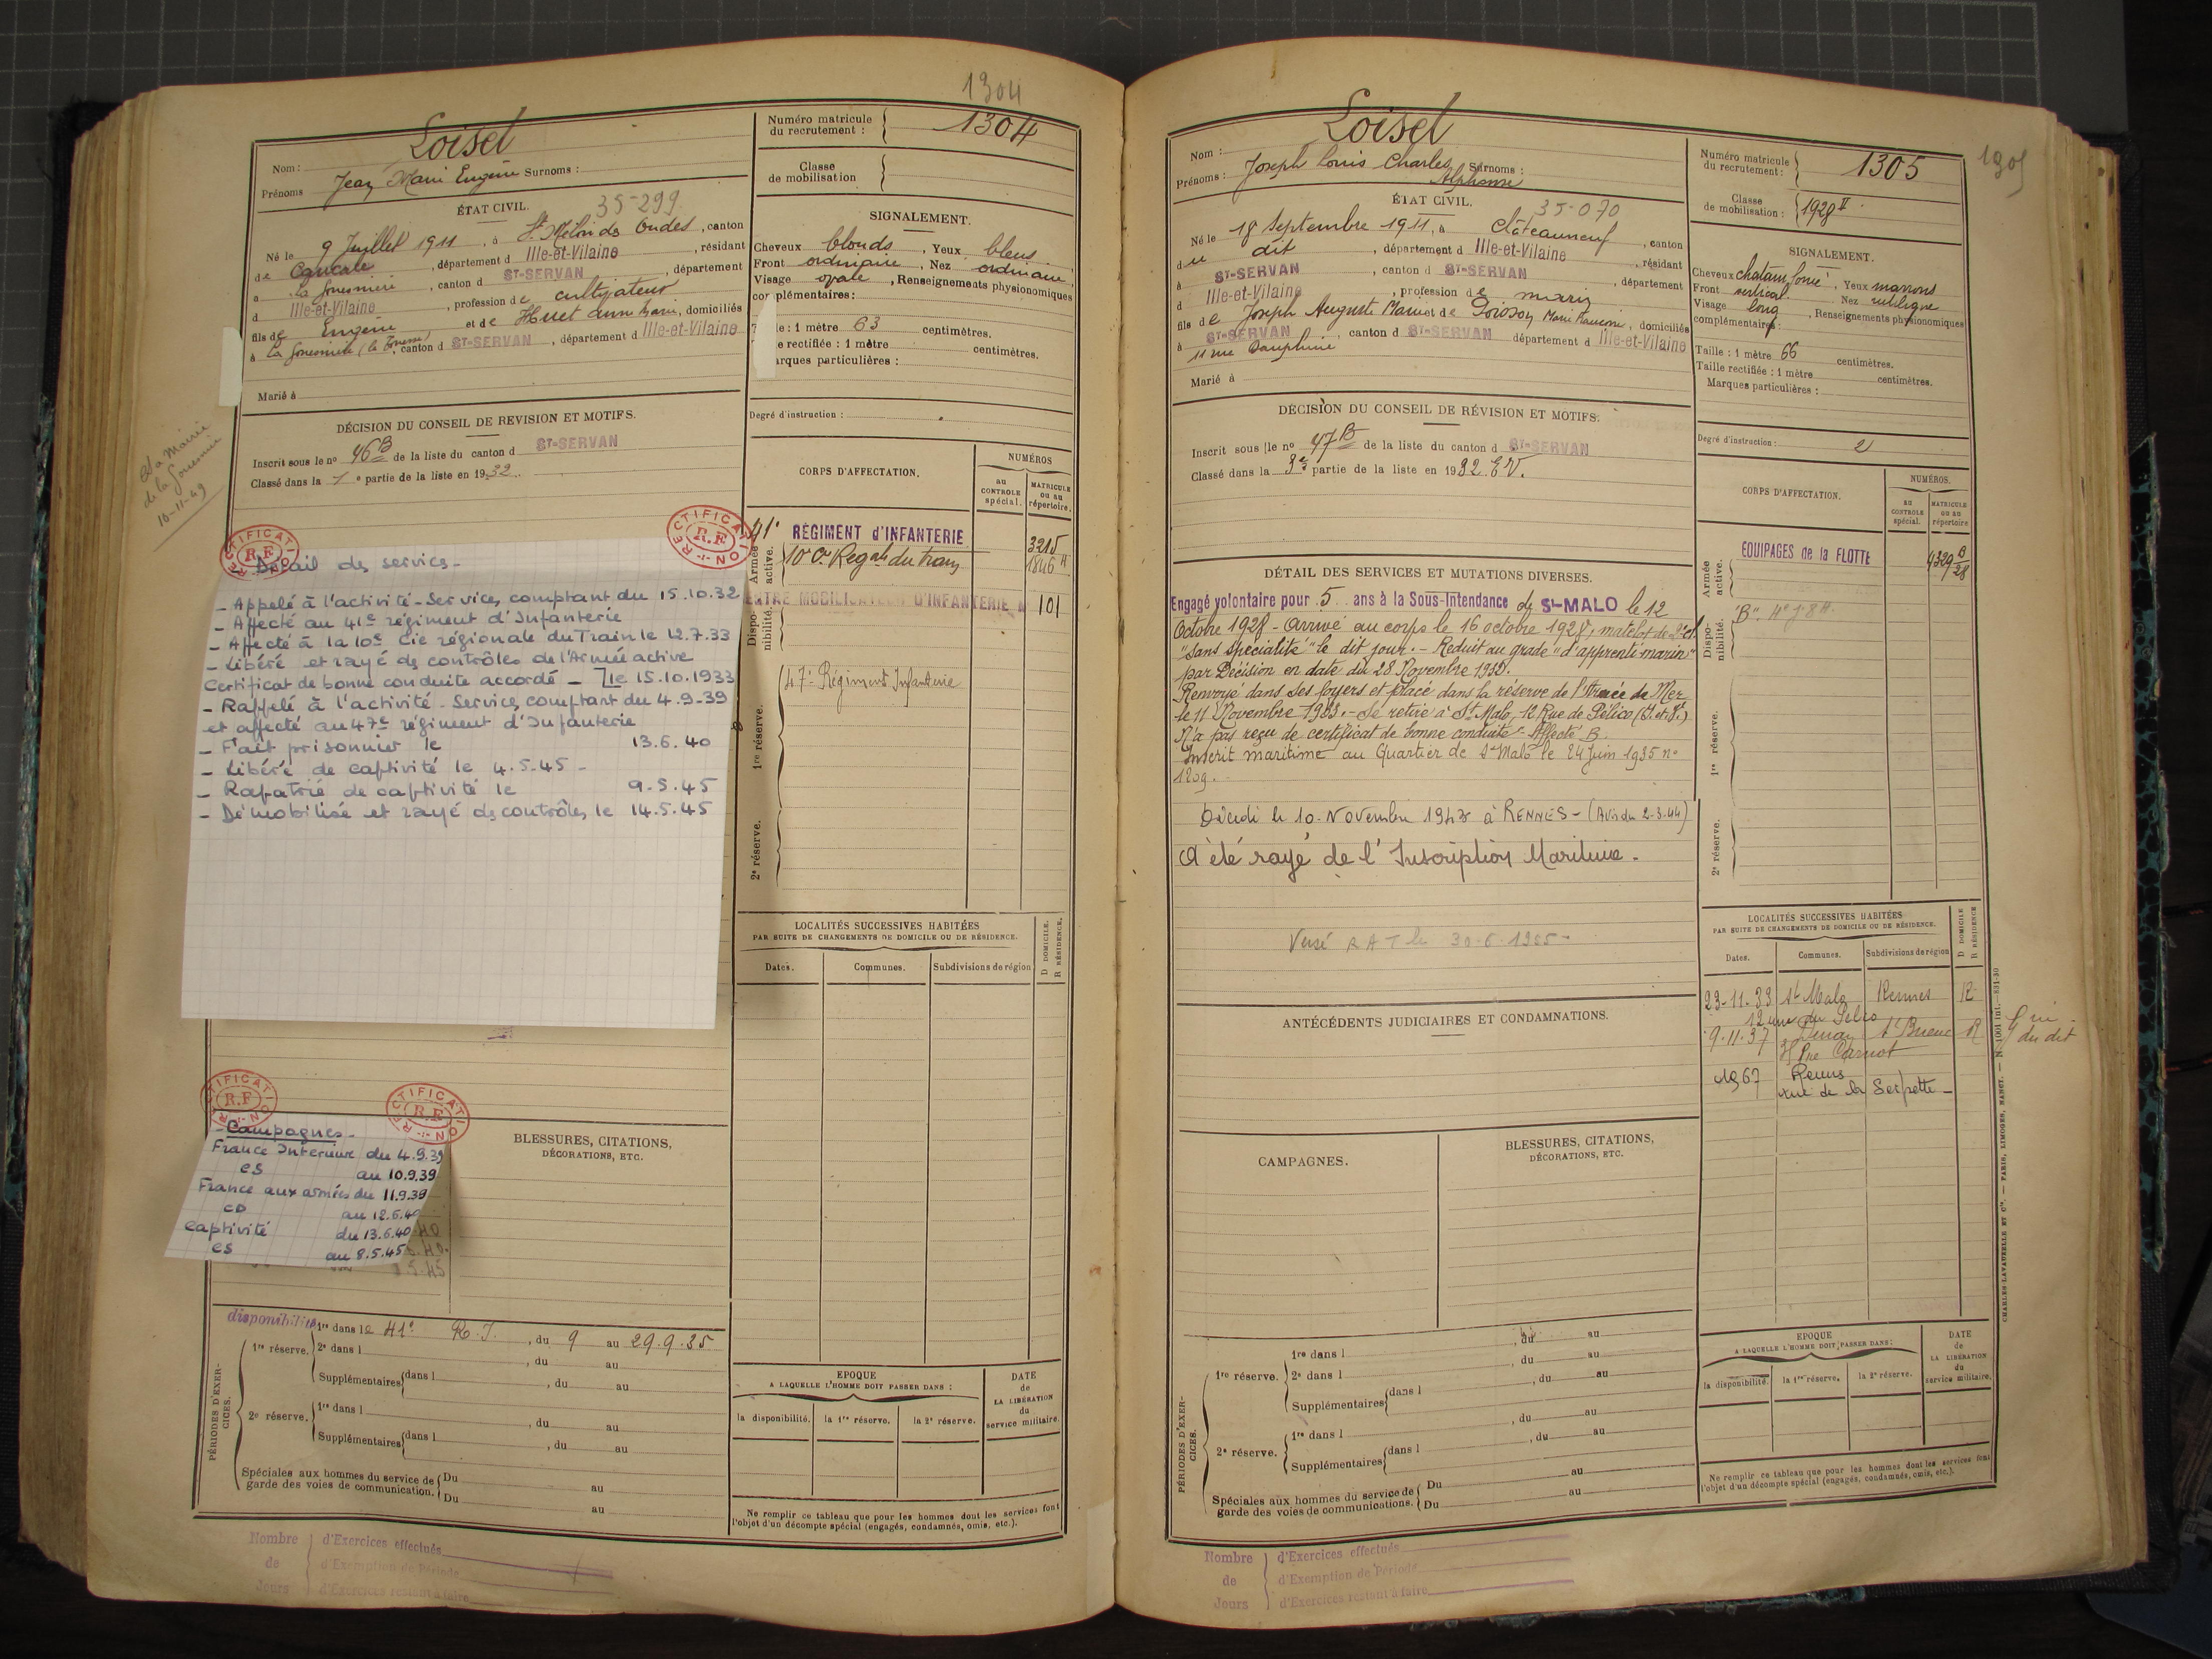 1304
Loisel
Nom :
Prénoms Jean Marie Eugène Surnoms :
Numéro matricule du recrutement : 1304
Classe de mobilisation
ÉTAT CIVIL. 35-299
Né le 9 Juillet 1911, à St Méloir des Ondes, canton
de Cancale, département d Ille-et-Vilaine, résidant
à La Gouesnière, canton d ST-SERVAN, département
d Ille-et-Vilaine, profession de cultivateur
fils de Eugène et de Huet Anne Marie, domiciliés
à La Gouesnière, canton d ST-SERVAN, département d Ille-et-Vilaine
Marié à
SIGNALEMENT.
Cheveux blonds, Yeux bleus
Front ordinaire, Nez ordinaire
Visage ovale, Renseignements physionomiques
complémentaires :
: 1 mètre 63 centimètres.
e rectifiée : 1 mètre centimètres.
arques particulières :
Degré d'instruction :
DÉCISION DU CONSEIL DE REVISION ET MOTIFS.
Inscrit sous le nº 46 B de la liste du canton d ST-SERVAN
Classé dans la 1e partie de la liste en 1932.
La Mairie
de la Gouesnière
10-11-49
CORPS D'AFFECTATION.
NUMÉROS
au CONTROLE spécial.
MATRICULE ou au répertoire.
Armée active.
41e RÉGIMENT d'INFANTERIE 3215
10e Cie Regale du train 1846
CENTRE MOBILISATEUR D'INFANTERIE N 101
Disponibilité.
47e Régiment Infanterie
1re réserve.
2e réserve.
RECTIFICATION R.F
RECTIFICATION R.F
Détail des services -
- Appelé à l'activité - Services comptant du 15.10.32
- Affecté au 41e régiment d'Infanterie
- Affecté à la 10e Cie régionale du Train le 12.7.33
- Libéré et rayé des contrôles de l'Armée active
Certificat de bonne conduite accordé - le 15.10.1933
- Rappelé à l'activité - Services comptant du 4.9.39
et affecté au 47e régiment d'Infanterie
- Fait prisonnier le 13.6.40
- Libéré de captivité le 4.5.45 -
- Rapatrié de captivité le 9.5.45
- Démobilisé et rayé des contrôles le 14.5.45
LOCALITÉS SUCCESSIVES HABITÉES
PAR SUITE DE CHANGEMENTS DE DOMICILE OU DE RÉSIDENCE.
Dates. Communes. Subdivisions de région
D DOMICILE.
R RÉSIDENCE.
RECTIFICATION R.F
RECTIFICATION R.F
- Campagnes -
France Intérieure du 4.9.39
CS au 10.9.39
France aux armées du 11.9.39
CD au 12.6.40
Captivité du 13.6.40
CS au 8.5.45
BLESSURES, CITATIONS,
DÉCORATIONS, ETC.
disponibilité
PÉRIODES D'EXERCICES.
1re réserve. 1re dans le 41e R.I., du 9 au 29.9.35
2e dans l , du au
Supplémentaires dans l , du au
2e réserve. 1re dans l , du au
Supplémentaires dans l , du au
Spéciales aux hommes du service de garde des voies de communication. Du au
Du au
EPOQUE
A LAQUELLE L'HOMME DOIT PASSER DANS :
la disponibilité. la 1re réserve. la 2e réserve.
DATE de LA LIBÉRATION du service militaire.
Ne remplir ce tableau que pour les hommes dont les services font
l'objet d'un décompte spécial (engagés, condamnés, omis, etc.).
Nombre de Jours
d'Exercices effectués
d'Exemption de Période
d'Exercices restant à faire
1305
Loisel
Nom :
Prénoms : Joseph Louis Charles Surnoms :
Alphonse
Numéro matricule du recrutement : 1305
Classe de mobilisation : 1928 II
ÉTAT CIVIL. 35-070
Né le 18 Septembre 1911, à Châteauneuf, canton
du dit, département d Ille-et-Vilaine, résidant
à ST-SERVAN, canton d ST-SERVAN, département
d Ille-et-Vilaine, profession de marin
fils de Joseph Auguste Marie et de Poisson Marie, domiciliés
à ST-SERVAN, canton d ST-SERVAN département d Ille-et-Vilaine
11 rue Dauphine
Marié à
SIGNALEMENT.
Cheveux chatain foncé, Yeux marrons
Front vertical Nez rectiligne
Visage long, Renseignements physionomiques
complémentaires :
Taille : 1 mètre 66 centimètres.
Taille rectifiée : 1 mètre centimètres.
Marques particulières :
Degré d'instruction : 2
DÉCISION DU CONSEIL DE RÉVISION ET MOTIFS.
Inscrit sous le nº 47 B de la liste du canton d ST-SERVAN
Classé dans la 3e partie de la liste en 1932 EV.
CORPS D'AFFECTATION.
NUMÉROS.
au CONTROLE spécial.
MATRICULE ou au répertoire
Armée active.
EQUIPAGES de la FLOTTE 4329 B/28
Disponibilité.
1re réserve.
2e réserve.
DÉTAIL DES SERVICES ET MUTATIONS DIVERSES.
Engagé volontaire pour 5 ans à la Sous-Intendance de St-MALO le 12
Octobre 1928 - Arrivé au corps le 16 octobre 1928, matelot de 2e cl
"Sans spécialité" le dit jour. - Réduit au grade "d'apprenti marin"
par Décision en date du 28 Novembre 1930.
Renvoyé dans ses foyers et placé dans la réserve de l'Armée de Mer
le 11 Novembre 1933. - Se retire à St Malo, 12 Rue de Pélico (I. et V.)
N'a pas reçu de certificat de bonne conduite - Affecté B.
Inscrit maritime au Quartier de St Malo le 24 Juin 1935 nº
1209. -
Décédé le 10 Novembre 1943 à RENNES - (Avis du 2-3-44)
A été rayé de l'Inscription Maritime.
Versé RAT le 30-6-1965 -
ANTÉCÉDENTS JUDICIAIRES ET CONDAMNATIONS.
LOCALITÉS SUCCESSIVES HABITÉES
PAR SUITE DE CHANGEMENTS DE DOMICILE OU DE RÉSIDENCE.
Dates. Communes. Subdivisions de région
D DOMICILE
R RÉSIDENCE
23-11-33 St Malo Rennes R
12 rue du Pélico
9-11-37 Dinan St Brieuc R
Rue Carnot
1967 Rennes
rue de la Serpette -
du dit
CAMPAGNES.
BLESSURES, CITATIONS,
DÉCORATIONS, ETC.
PÉRIODES D'EXERCICES.
1re réserve. 1re dans l , du au
2e dans l , du au
Supplémentaires dans l , du au
2e réserve. 1re dans l , du au
Supplémentaires dans l , du au
Spéciales aux hommes du service de garde des voies de communications. Du au
Du au
EPOQUE
A LAQUELLE L'HOMME DOIT PASSER DANS :
la disponibilité. la 1re réserve. la 2e réserve.
DATE de LA LIBÉRATION du service militaire.
Ne remplir ce tableau que pour les hommes dont les services font
l'objet d'un décompte spécial (engagés, condamnés, omis, etc.).
CHARLES-LAVAUZELLE ET Cie. — PARIS, LIMOGES, NANCY.
Nombre de Jours
d'Exercices effectués
d'Exemption de Période
d'Exercices restant à faire